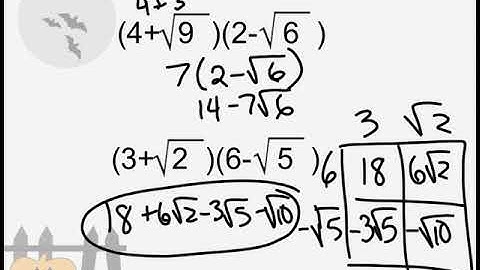 4+3
(4+√9)(2-√6)
7(2-√6)
14-7√6
(3+√2)(6-√5)
18+6√2-3√5-√10
3 √2
6 18 6√2
-√5 -3√5 -√10